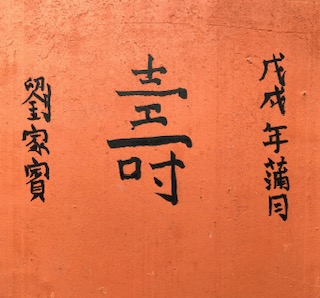 戊戌年蒲月
壽
劉家賓